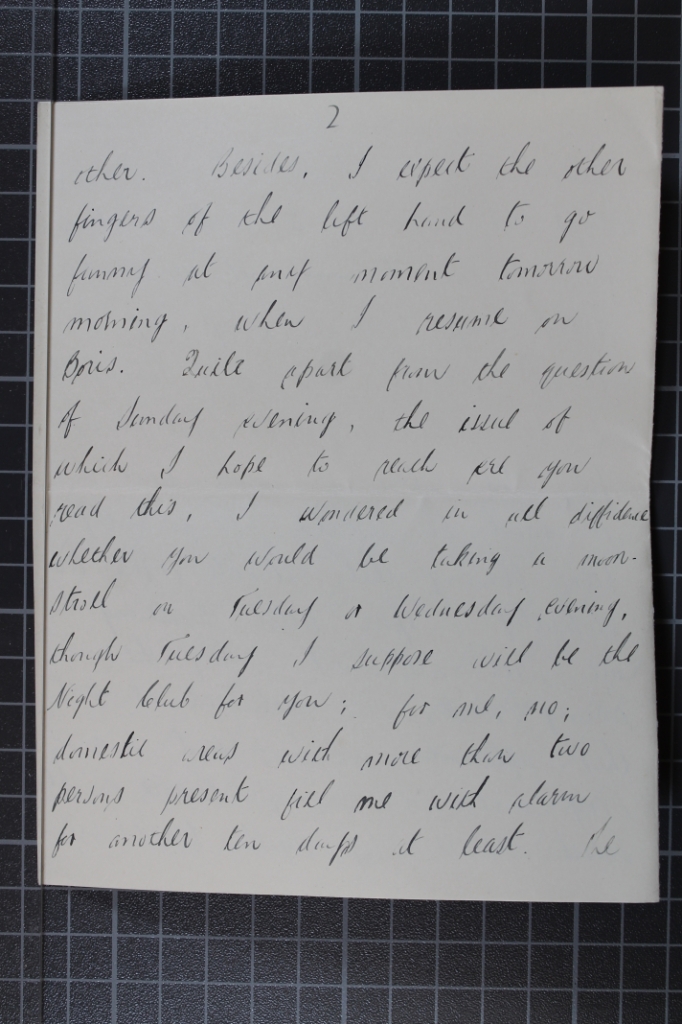 2
other. Besides, I expect the other
fingers of the left hand to go
funny at any moment tomorrow
morning, when I resume on
Boris. Quite apart from the question
of Sunday evening, the issue of
which I hope to reach ere you
read this, I wondered in all diffidence
whether you would be taking a moon-
stroll on Tuesday or Wednesday evening,
though Tuesday I suppose will be the
Night Club for you; for me, no;
domestic areas with more than two
persons present fill me with alarm
for another ten days at least. The